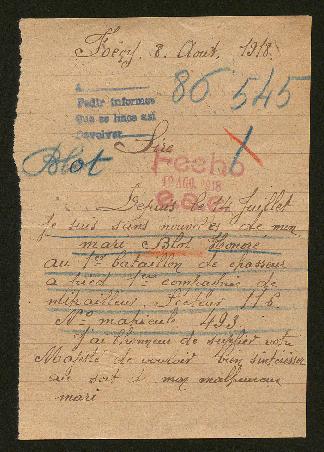 Foëcy. 8. Aout. 1918.
86 545
A
Pedir informes
Que se hace así
Devolver
Sire
Blot
Fecho
12 AGO. 1918
Depuis le 14 Juillet
Je suis sans nouvelles de mon
mari Blot Honoré
au 1er bataillon de chasseur
à pied 1ere compagnie de
mitrailleurs Secteur 115
No matricule 493
J'ai l'honneur de supplier votre
Majesté de vouloir bien s'intéresser
au sort de mon malheureux
mari